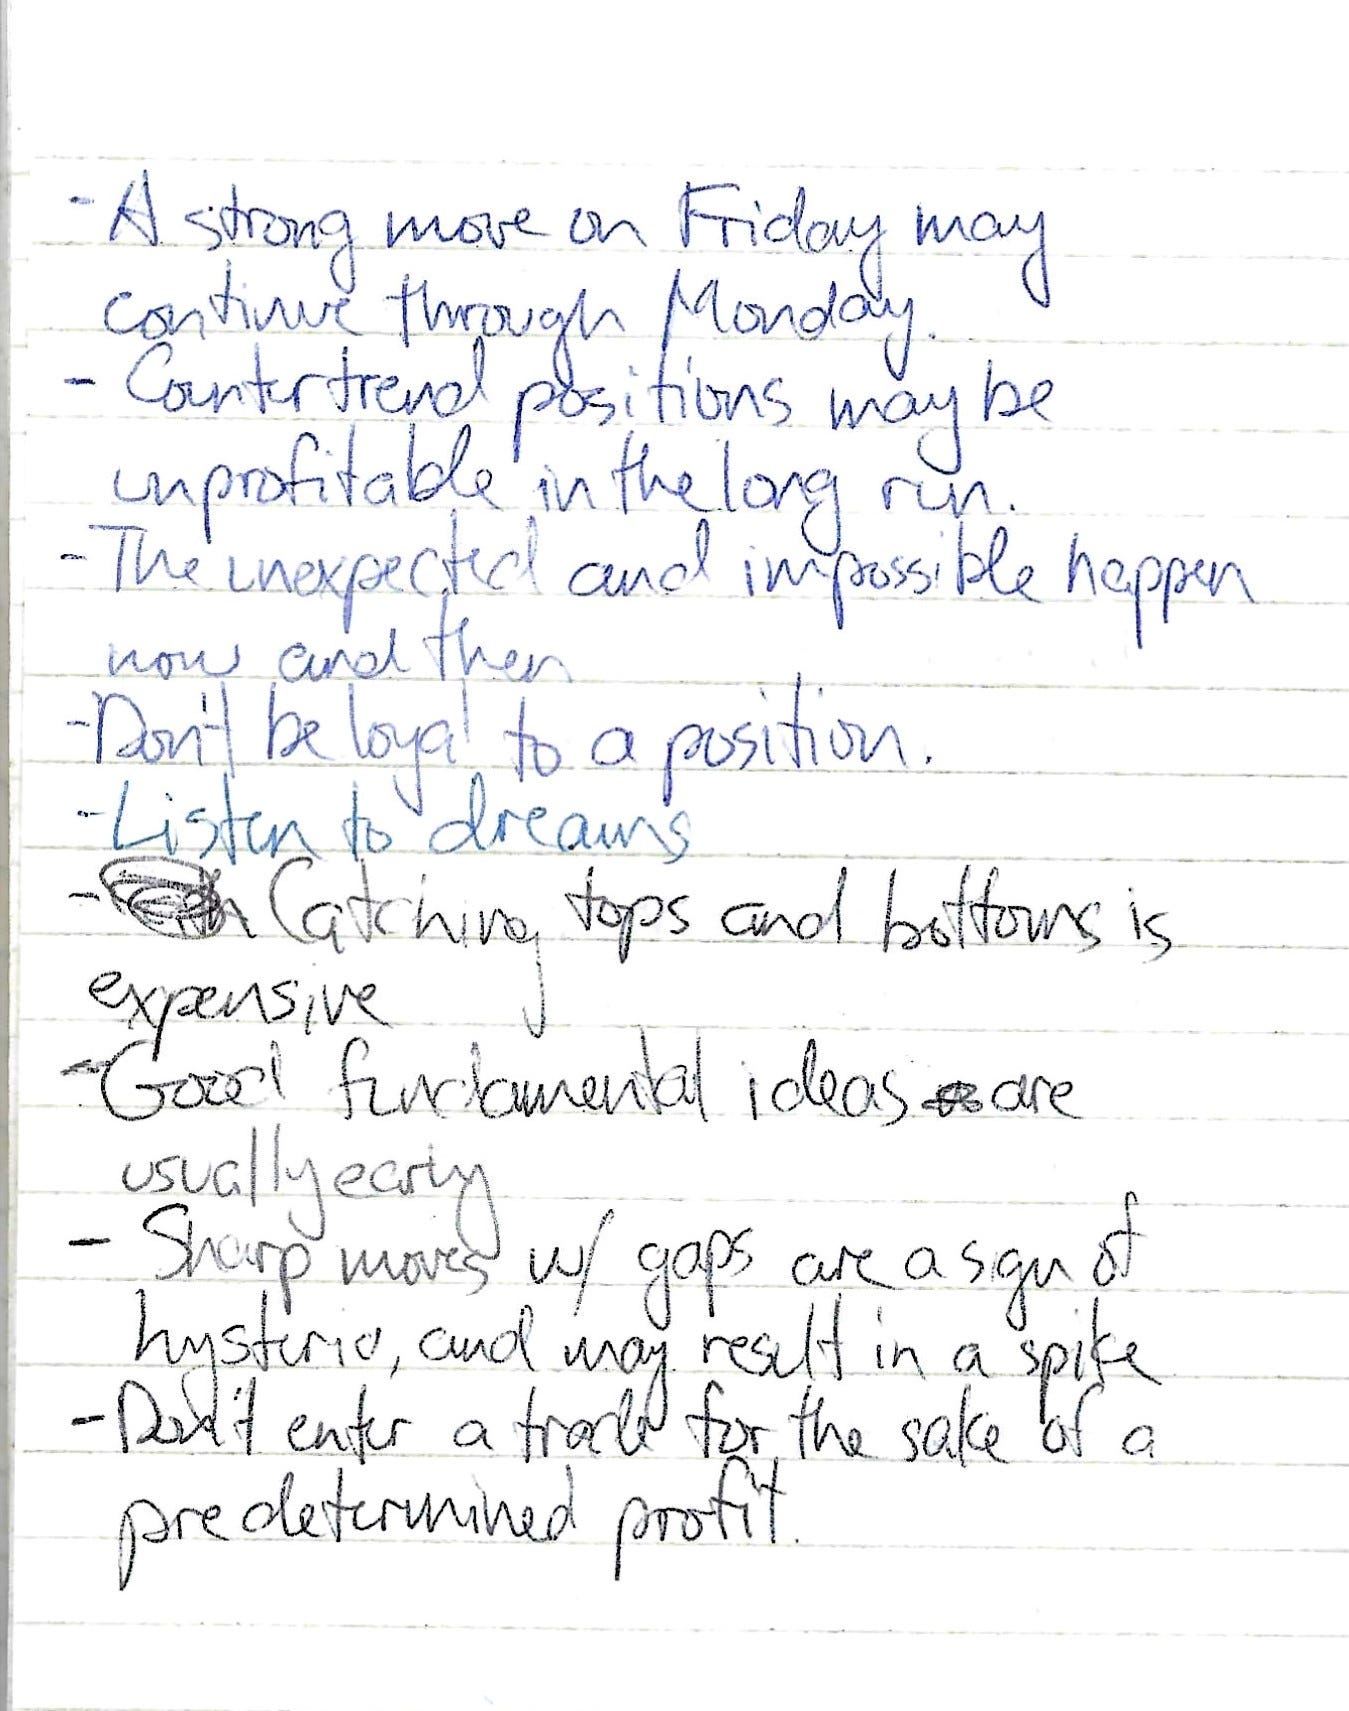 - A strong move on Friday may
continue through Monday.
- Countertrend positions may be
unprofitable in the long run.
- The unexpected and impossible happen
now and then
- Don't be loyal to a position.
- Listen to dreams
- Catching tops and bottoms is
expensive
- Good fundamental ideas are
usually early
- Sharp moves w/ gaps are a sign of
hysteria, and may result in a spike
- Don't enter a trade for the sake of a
predetermined profit.